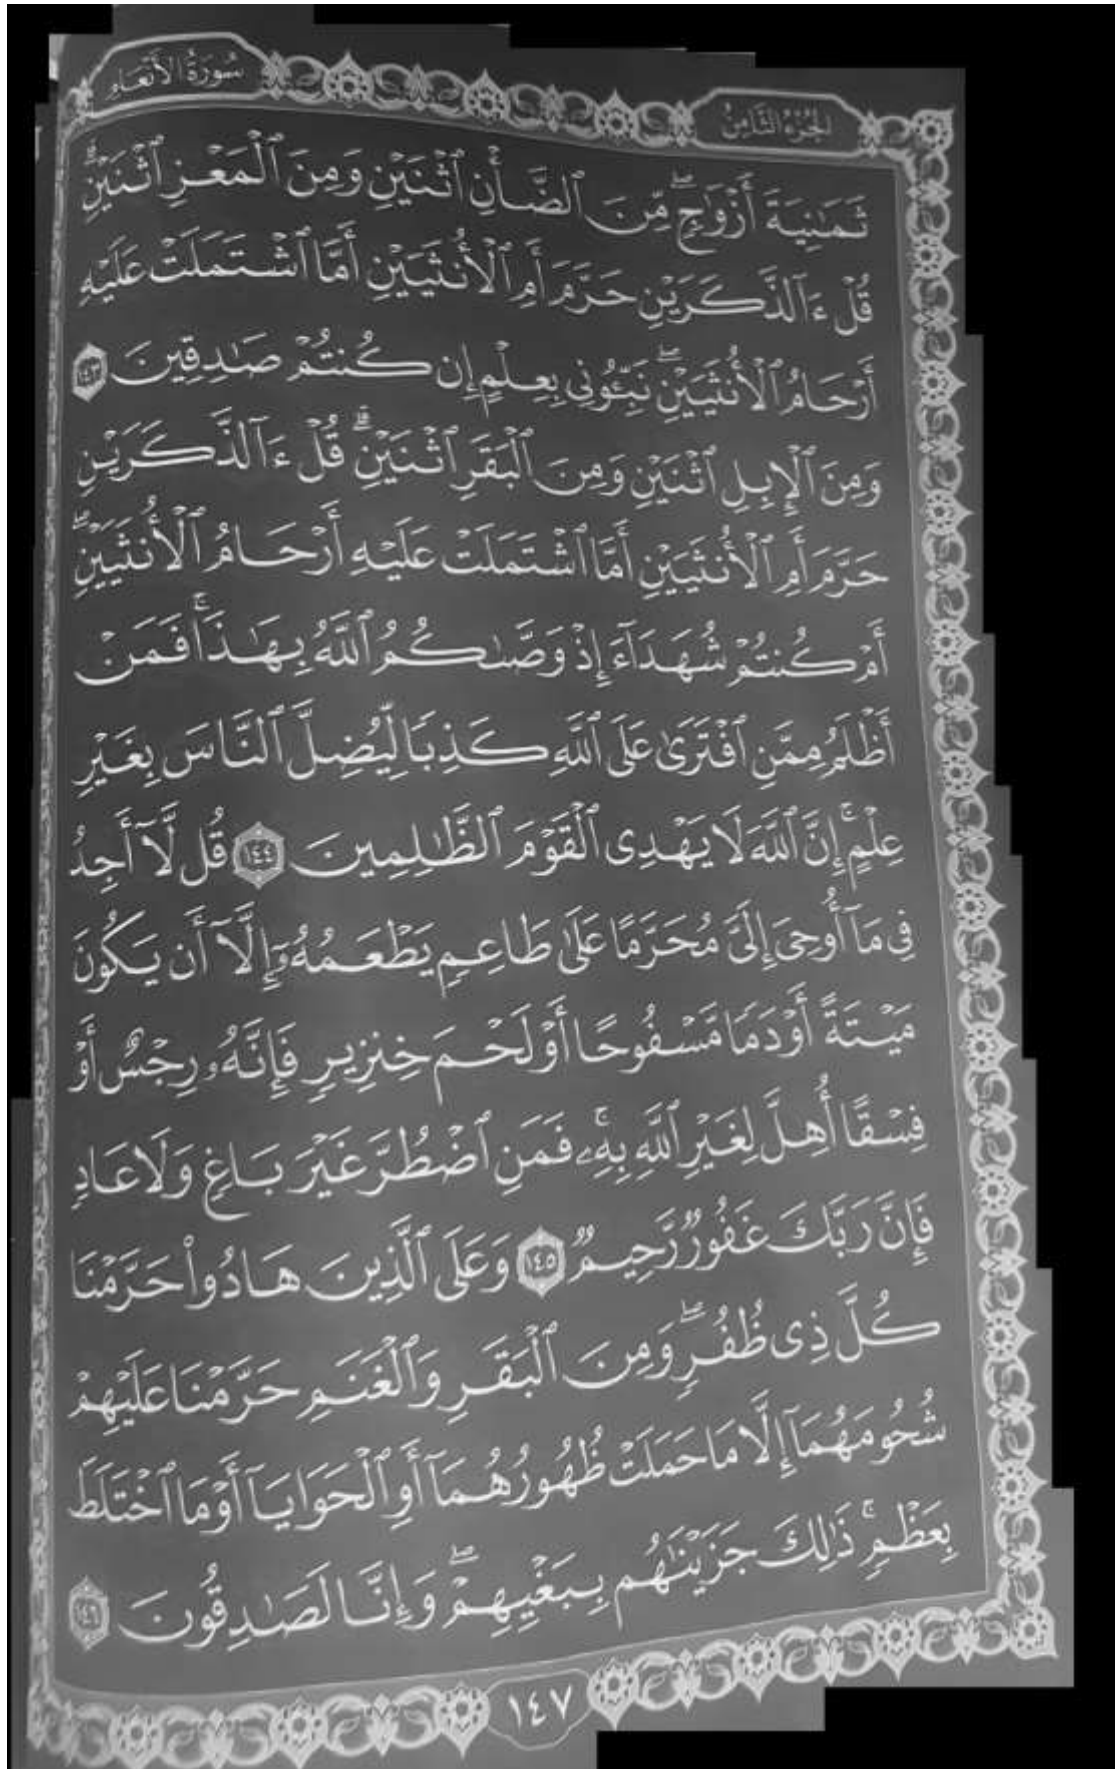 سُورَةُ الأَنْعَامِ
الجُزْءُ الثَّامِنُ
ثَمَٰنِيَةَ أَزْوَٰجٍۖ مِّنَ ٱلضَّأْنِ ٱثْنَيْنِ وَمِنَ ٱلْمَعْزِ ٱثْنَيْنِۗ
قُلْ ءَآلذَّكَرَيْنِ حَرَّمَ أَمِ ٱلْأُنثَيَيْنِ أَمَّا ٱشْتَمَلَتْ عَلَيْهِ
أَرْحَامُ ٱلْأُنثَيَيْنِۖ نَبِّـُٔونِى بِعِلْمٍ إِن كُنتُمْ صَٰدِقِينَ ١٤٣
وَمِنَ ٱلْإِبِلِ ٱثْنَيْنِ وَمِنَ ٱلْبَقَرِ ٱثْنَيْنِۗ قُلْ ءَآلذَّكَرَيْنِ
حَرَّمَ أَمِ ٱلْأُنثَيَيْنِ أَمَّا ٱشْتَمَلَتْ عَلَيْهِ أَرْحَامُ ٱلْأُنثَيَيْنِۖ
أَمْ كُنتُمْ شُهَدَآءَ إِذْ وَصَّىٰكُمُ ٱللَّهُ بِهَٰذَاۚ فَمَنْ
أَظْلَمُ مِمَّنِ ٱفْتَرَىٰ عَلَى ٱللَّهِ كَذِبًا لِّيُضِلَّ ٱلنَّاسَ بِغَيْرِ
عِلْمٍۚ إِنَّ ٱللَّهَ لَا يَهْدِى ٱلْقَوْمَ ٱلظَّٰلِمِينَ ١٤٤ قُل لَّآ أَجِدُ
فِى مَآ أُوحِىَ إِلَىَّ مُحَرَّمًا عَلَىٰ طَاعِمٍ يَطْعَمُهُۥٓ إِلَّآ أَن يَكُونَ
مَيْتَةً أَوْ دَمًا مَّسْفُوحًا أَوْ لَحْمَ خِنزِيرٍ فَإِنَّهُۥ رِجْسٌ أَوْ
فِسْقًا أُهِلَّ لِغَيْرِ ٱللَّهِ بِهِۦۚ فَمَنِ ٱضْطُرَّ غَيْرَ بَاغٍ وَلَا عَادٍ
فَإِنَّ رَبَّكَ غَفُورٌ رَّحِيمٌ ١٤٥ وَعَلَى ٱلَّذِينَ هَادُوا۟ حَرَّمْنَا
كُلَّ ذِى ظُفُرٍۖ وَمِنَ ٱلْبَقَرِ وَٱلْغَنَمِ حَرَّمْنَا عَلَيْهِمْ
شُحُومَهُمَآ إِلَّا مَا حَمَلَتْ ظُهُورُهُمَآ أَوِ ٱلْحَوَايَآ أَوْ مَا ٱخْتَلَطَ
بِعَظْمٍۚ ذَٰلِكَ جَزَيْنَٰهُم بِبَغْيِهِمْۖ وَإِنَّا لَصَٰدِقُونَ ١٤٦
١٤٧